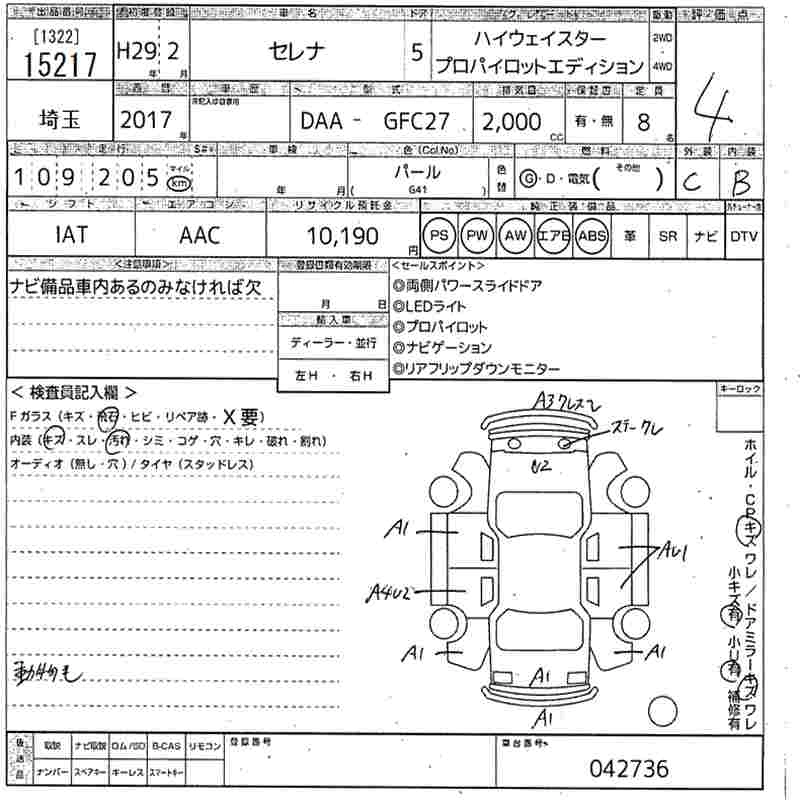 出品番号 初度登録 車名 ドア グレード 駆動 評価点
[1322]
15217 H29年 2月 セレナ 5 ハイウェイスター 2WD
プロパイロットエディション 4WD
4
歴 車歴 型式 排気量 保証書 定員
埼玉 2017年 DAA - GFC27 2,000CC 有・無 8名
走行 車検 色(Col.No) 燃料 外装 内装
109,205 マイル km 年 月 パール (G41) 色替 G・D・電気(その他) C B
シフト エアコン リサイクル預託金 純正装備品
IAT AAC 10,190円 PS PW AW エアB ABS 革 SR ナビ DTV
<注意事項> 登録書類有効期限 <セールスポイント>
ナビ備品車内あるのみなければ欠 月 日
輸入車
ディーラー・並行
左H ・ 右H
◎両側パワースライドドア
◎LEDライト
◎プロパイロット
◎ナビゲーション
◎リアフリップダウンモニター
< 検査員記入欄 >
Fガラス (キズ・飛石・ヒビ・リペア跡・X要)
内装 (キズ・スレ・汚れ・シミ・コゲ・穴・キレ・破れ・割れ)
オーディオ (無し・穴) / タイヤ (スタッドレス)
動物毛
キーロック
A3
U2
A1
AU1
A4U2
A1
A1
A1
A1
ホイル・CPキズワレ/ドアミラーキズワレ
小キズ有 小U有 補修有
後送品 取説 ナビ取説 ロム/SD B-CAS リモコン 登録番号 車台番号
ナンバー スペアキー キーレス スマートキー 042736